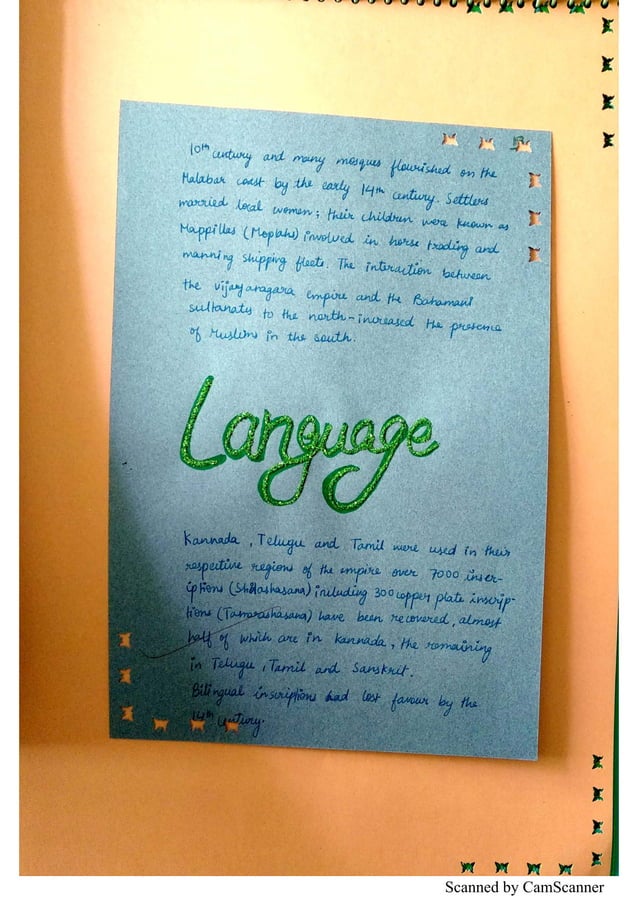 10th century and many mosques flourished on the
Malabar coast by the early 14th century. Settlers
married local women; their children were known as
Mappillas (Moplahs) involved in horse trading and
manning shipping fleets. The interaction between
the vijayanagara empire and the Bahamani
sultanates to the north-increased the presence
of Muslims in the south.
Language
Kannada, Telugu and Tamil were used in their
respective regions of the empire over 7000 inscr-
iptions (Shilashasana) including 300 copper plate inscrip-
tions (Tamarashasana) have been recovered, almost
half of which are in kannada, the remaining
in Telugu, Tamil and Sanskrit.
Bilingual inscriptions had lost favour by the
14th century.
Scanned by CamScanner